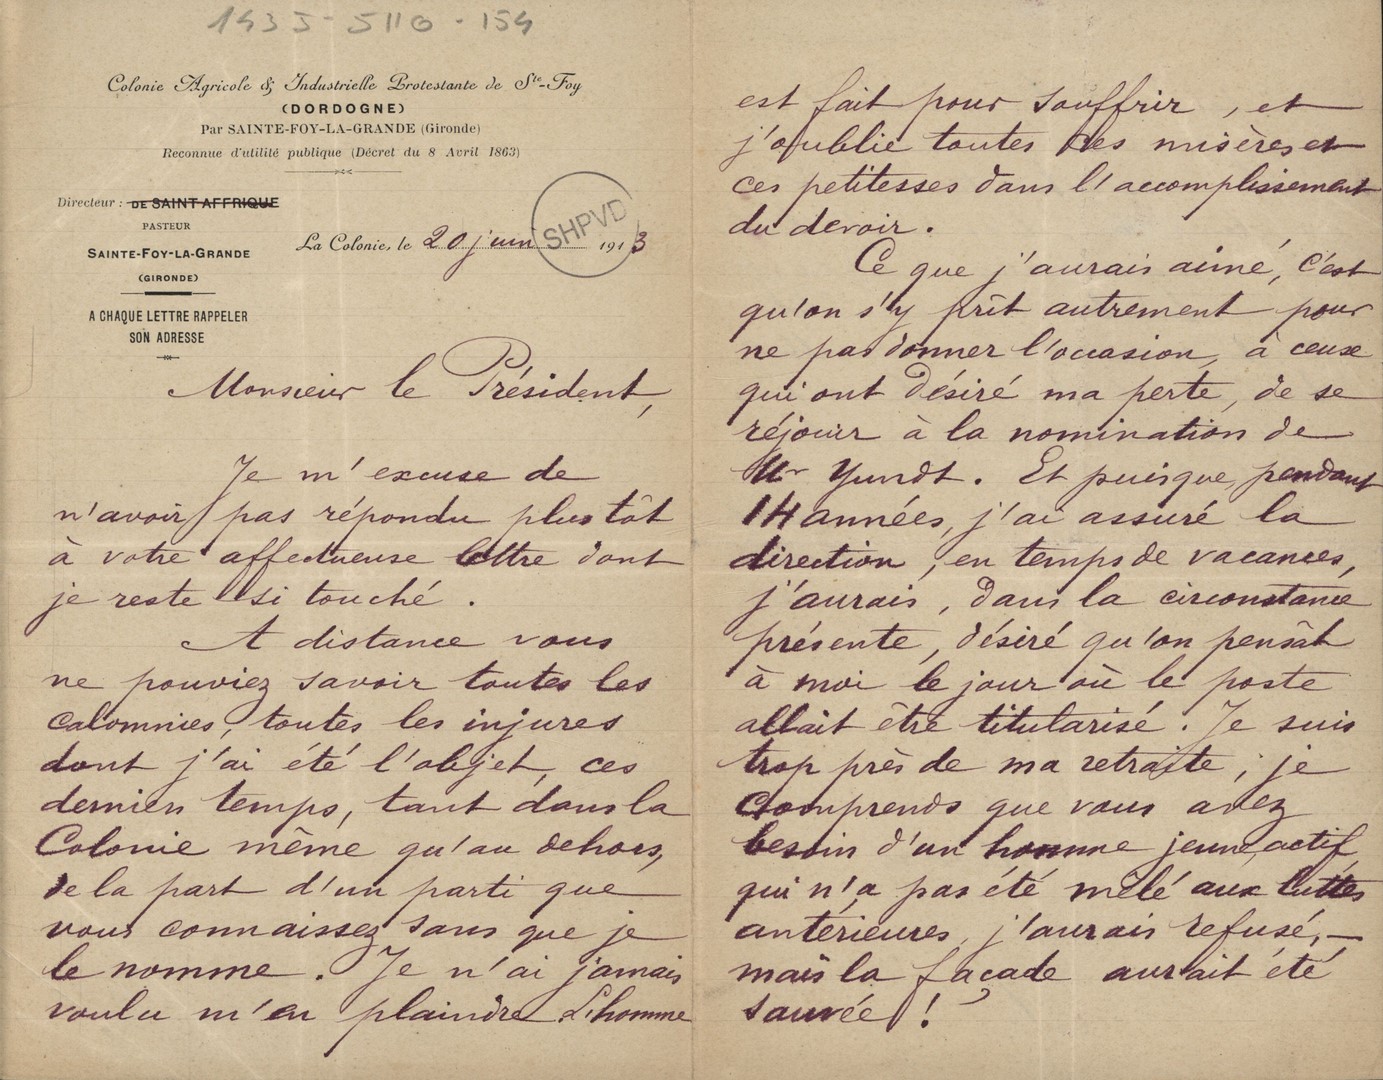 1435-5110-154
Colonie Agricole & Industrielle Protestante de Ste-Foy
(DORDOGNE)
Par SAINTE-FOY-LA-GRANDE (Gironde)
Reconnue d'utilité publique (Décret du 8 Avril 1863)
Directeur : DE SAINT AFFRIQUE
PASTEUR
SAINTE-FOY-LA-GRANDE
(GIRONDE)
A CHAQUE LETTRE RAPPELER
SON ADRESSE
La Colonie, le 20 juin 1913
SHPVD
Monsieur le Président,
Je m'excuse de
n'avoir pas répondu plus tôt
à votre affectueuse lettre dont
je reste si touché.
A distance vous
ne pouviez savoir toutes les
calomnies, toutes les injures
dont j'ai été l'objet, ces
derniers temps, tant dans la
Colonie même qu'au dehors,
de la part d'un parti que
vous connaissez sans que je
le nomme. Je n'ai jamais
voulu m'en plaindre. L'homme
est fait pour souffrir, et
j'oublie toutes ces misères et
ces petitesses dans l'accomplissement
du devoir.
Ce que j'aurais aimé, c'est
qu'on s'y prît autrement pour
ne pas donner l'occasion, à ceux
qui ont désiré ma perte, de se
réjouir à la nomination de
Mr Yundt. Et puisque, pendant
14 années, j'ai assuré la
direction, en temps de vacances,
j'aurais, dans la circonstance
présente, désiré qu'on pensât
à moi le jour où le poste
allait être titularisé. Je suis
trop près de ma retraite, je
comprends que vous avez
besoin d'un homme jeune, actif,
qui n'a pas été mêlé aux luttes
antérieures, j'aurais refusé, -
mais la façade aurait été
sauvée !